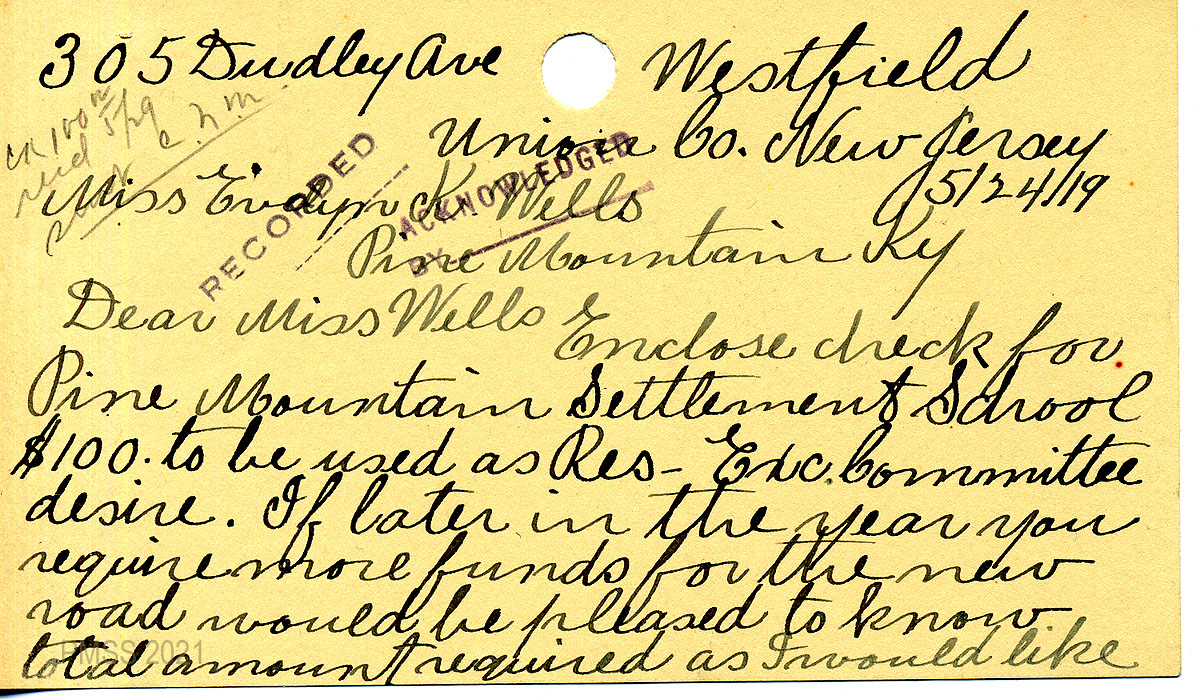 305 Dudley Ave Westfield
Union Co. New Jersey
5/24/19
CK 100
recd 5/29
RECORDED
ACKNOWLEDGED
BY
Miss Evelyn K. Wells
Pine Mountain Ky
Dear Miss Wells
Enclose check for
Pine Mountain Settlement School
$100. to be used as Res- Exc. Committee
desire. If later in the year you
require more funds for the new
road would be pleased to know
total amount required as I would like
PMSS 2021